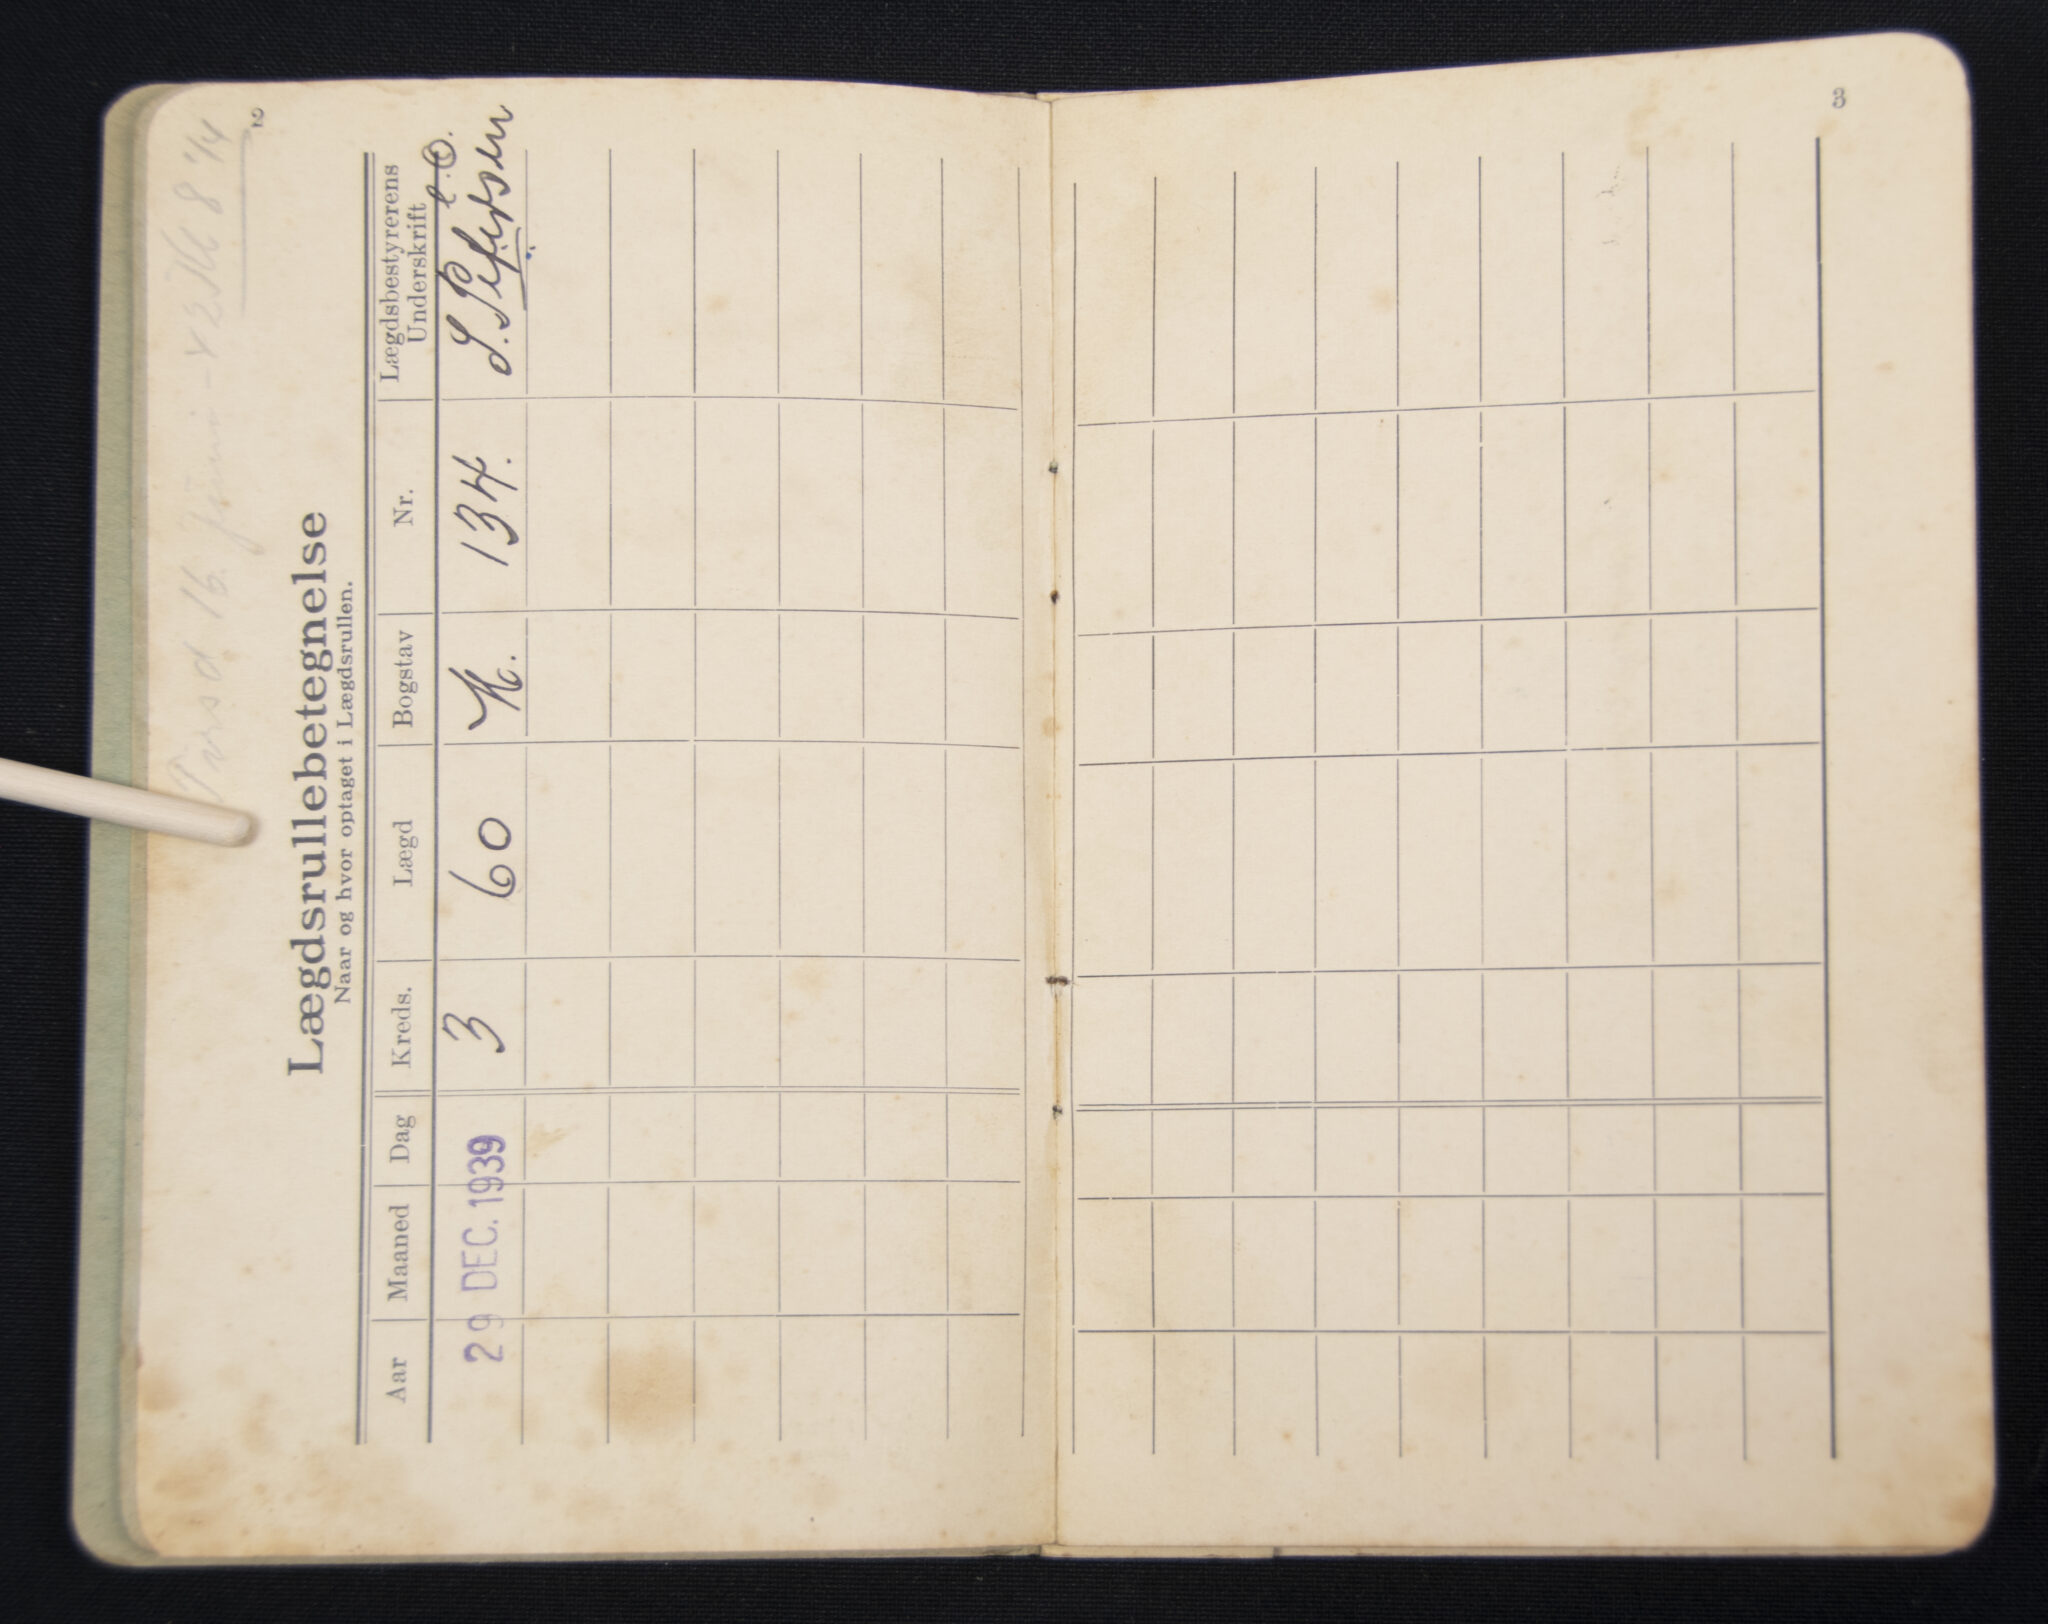 2
16. Juni - 42 Kl 8 1/4
Lægdsrullebetegnelse
Naar og hvor optaget i Lægdsrullen.
Aar Maaned Dag Kreds. Lægd Bogstav Nr. Lægdsbestyrerens Underskrift
29 DEC. 1939 3 60 K. 134. S. Petersen
3